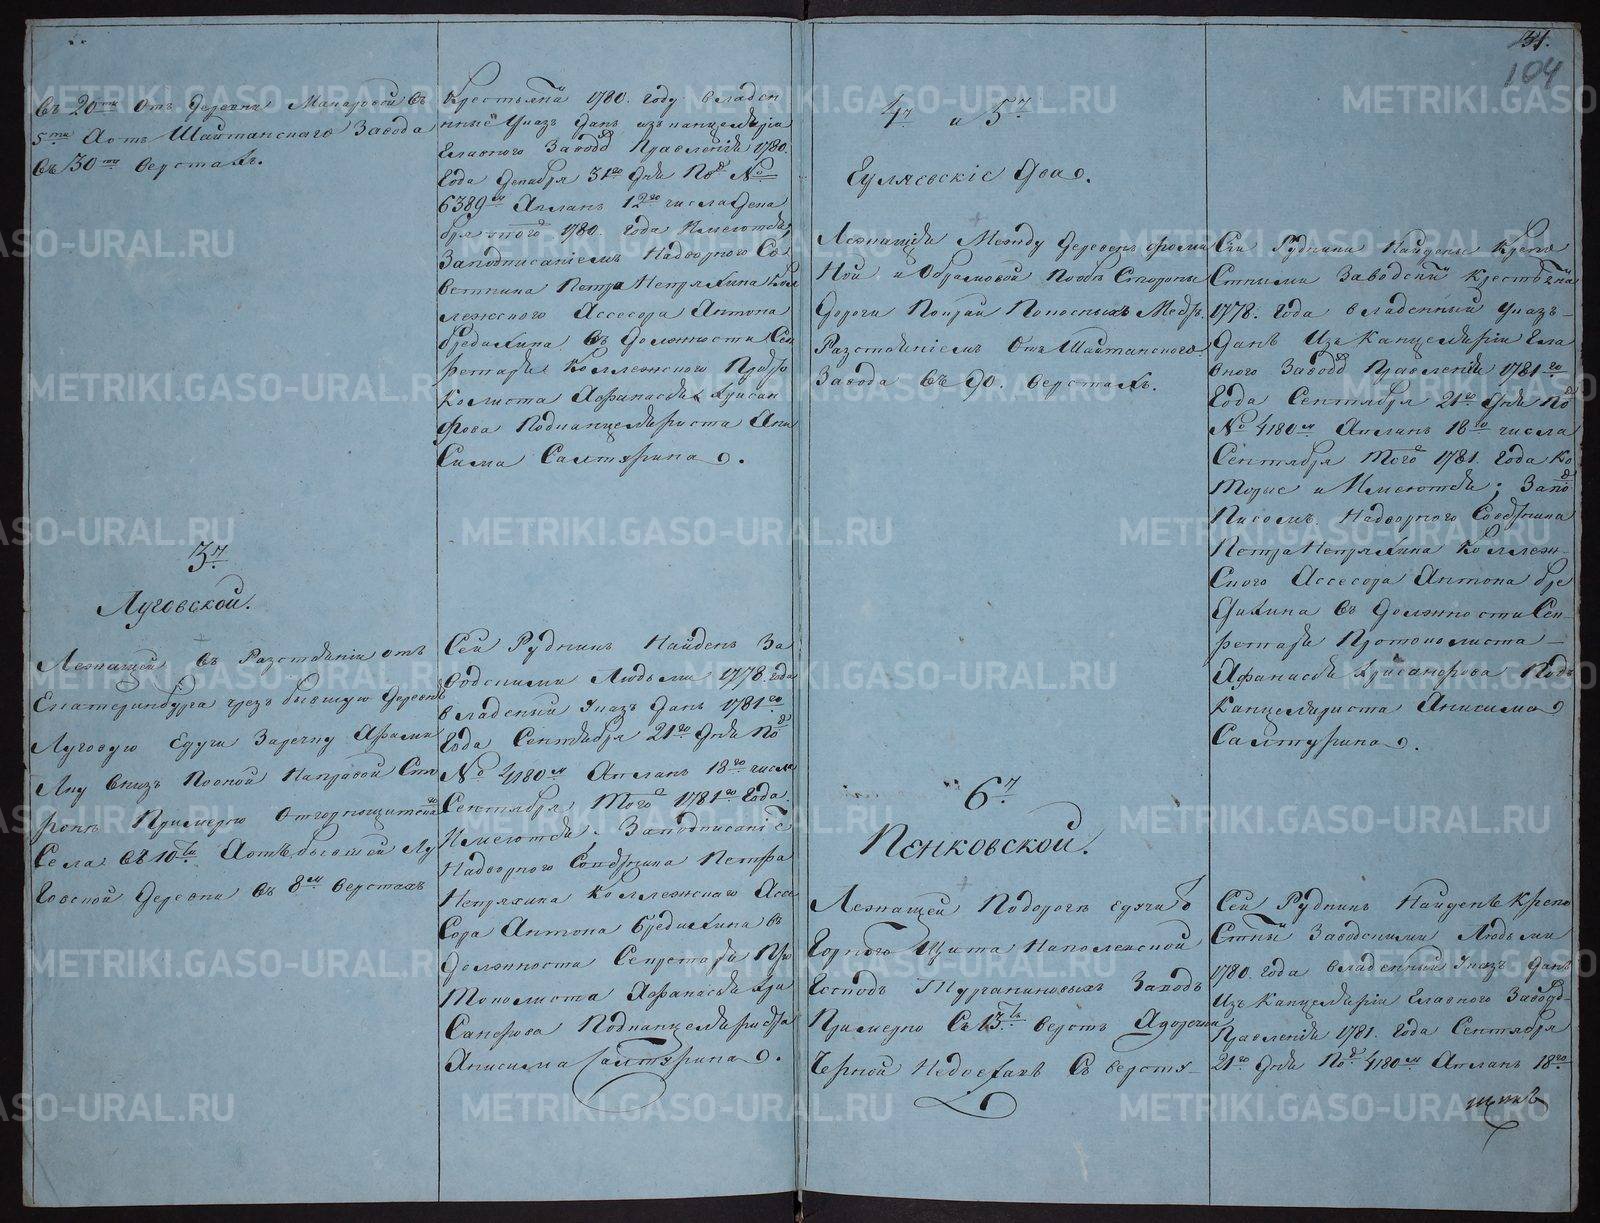 въ 20ти отъ деревни Макаровой въ
5ти а отъ Шайтанскаго Завода
въ 30ти верстахъ.
Крестьяны 1780. году владен
ныё Указъ данъ изъ канцеляріи
Главного Заводъ Правленія 1780
Года Декабря 31го дня Подъ №
6389м а планъ 12го числа Дека
бря 1780. года имеются
За подписаніемъ Надворного Со
ветника Петра Непряхина Кол
лежского Ассесора Антона
Бредихина въ должности Сек
ретаря Коллежского Прото
Колиста Афанасья Хрисан
фова Подканцеляриста Ани
Сима Салтырина.
3й
Луговской.
Лежащей въ Разстояніи отъ
Екатеринбурга чрезъ бывшую деревню
Луговую едучи
внизъ По оной На правой Сто
роне Примерно от горнощитскаго
Села въ 10ти а отъ бывшей Лу
говской деревни въ 8м верстахъ
Сей Рудникъ Найденъ За
водскими Людьми 1778 года
владеный Указъ данъ 1781го
Года Сентября 21го дня Подъ
№ 4180м а планъ 18го числа
Сентября Того 1781го Года
Имеются За подписаніе
Надворного Советника Петра
Непряхина Коллежскаго Ассе
Сора Антона Бредихина въ
должности Секретаря Про
Токолиста Афанасья Хри
Санфова Подканцеляриста
Анисима Салтырина.
31.
104
4й и 5й
Гуляевскіе два.
Лежащія Между деревень
Ной и Абрамовой По обе Стороны
Дороги
Разстояніемъ отъ Шайтанского
Завода въ 90. верстахъ.
Сіи Рудники Найдены Крепо
Стными Заводскій Крестьяна
1778. Года владенный Указъ
данъ Изъ Канцеляріи Гла
вного Заводъ Правленія 1781го
Года Сентября 21го дня Подъ
№ 4180м а планъ 18го числа
Сентября Того 1781 Года Ко
Торые и Имеются; За под
Писомъ Надворного Советника
Петра Непряхина Коллеж
Ского Ассесора Антона Бре
дихина въ должности Сек
ретаря Протоколиста
Афанасья Хрисанфова Подъ
Канцеляриста Анисима
Салтурина.
6й
Пенковской.
Лежащей По дороге едучи
Горного Щита На полевской
Господъ Турчаниновыхъ Заводъ
Примерно Съ 13ть верстъ а до речки
Черной Недоехавъ Съ версту
Сей Рудникъ Найденъ Крепо
Стны Заводскими Людьми
1780. года владенный Указъ данъ
Изъ Канцеляріи Главного Заводъ
Правленія 1781. Года Сентября
21го дня Подъ 4180м а планъ 18го
METRIKI.GASO-URAL.RU